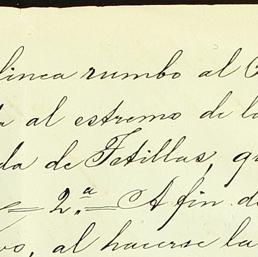 linea rumbo al
al estremo de la
da de Tetillas, qu
= 2.ª = A fin d
vo, al hacerse la